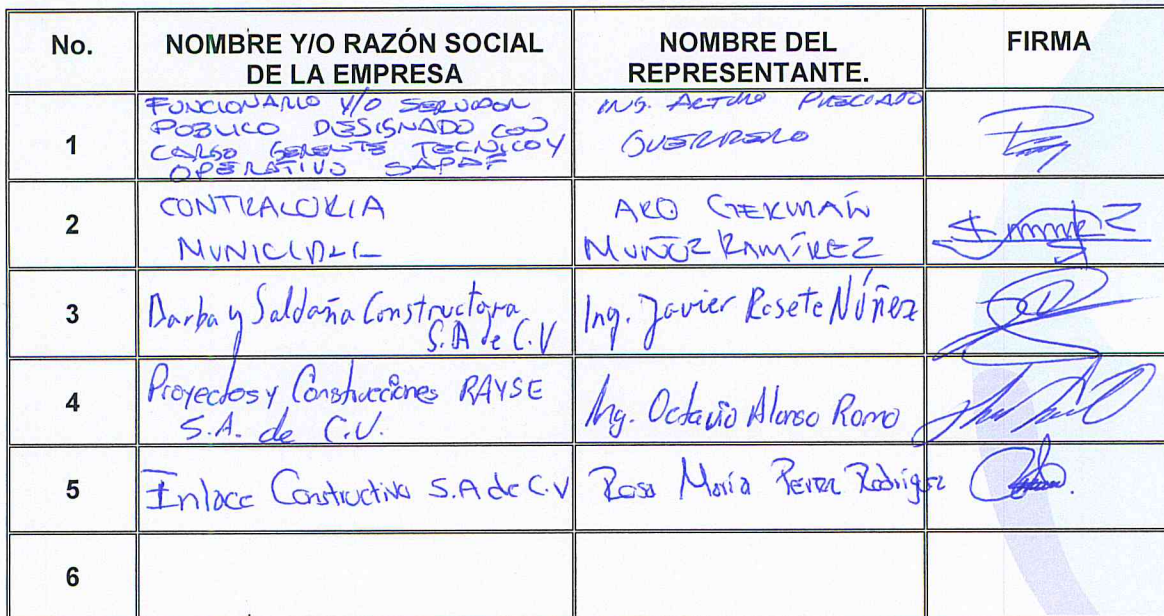 No.
NOMBRE Y/O RAZÓN SOCIAL
DE LA EMPRESA
NOMBRE DEL
REPRESENTANTE.
FIRMA
1
FUNCIONARIO Y/O SERVIDOR
PÚBLICO DESIGNADO CON
CARGO GERENTE TECNICO Y
OPERATIVO SAPAF
ING. ARTURO PRECIADO
GUERRERO
2
CONTRALORIA
MUNICIPAL
ARQ GERMAN
MUÑOZ RAMÍREZ
3
Barba y Saldaña Constructora
S.A de C.V
Ing. Javier Rosete Núñez
4
Proyectos y Construcciones RAYSE
S.A. de C.V.
Ing. Octavio Alonso Romo
5
Enlace Constructivo S.A de C.V
Rosa María Perez Rodriguez
6